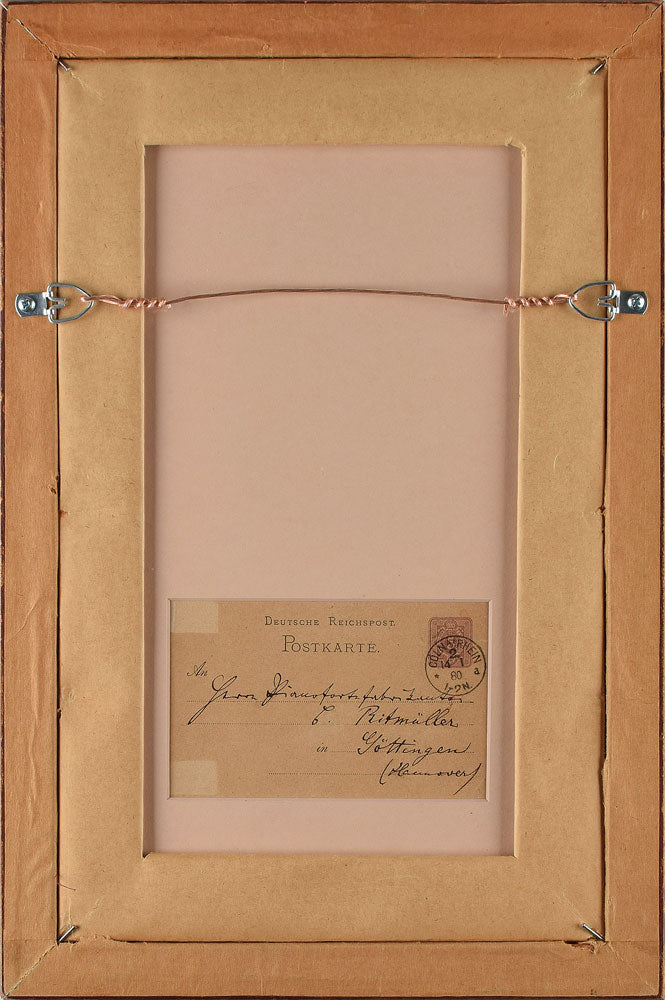 DEUTSCHE REICHSPOST.
POSTKARTE.
CÖLN A/RHEIN
2
14 1
80
1-2N
* a
An
Herrn Pianofortefabrikanten
C. Ritmüller
in Göttingen
(Hannover)